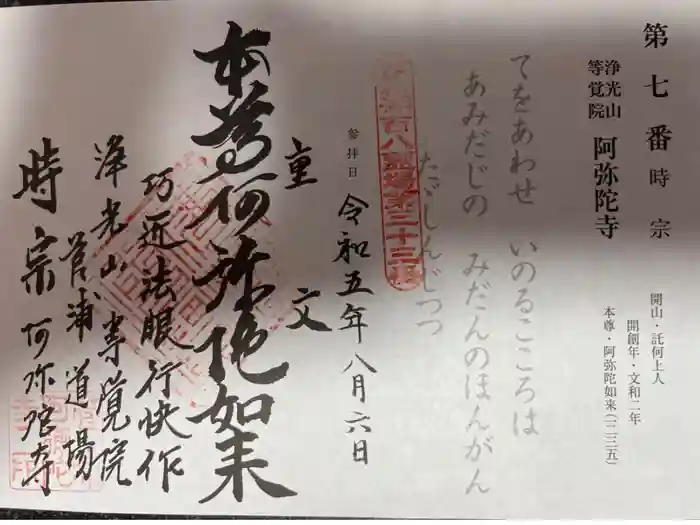 第七番 時宗
浄光山
等覚院
阿弥陀寺
開山・託何上人
開創年・文和二年
本尊・阿弥陀如来(一二三五)
てをあわせ いのるこころは
あみだじの みだんのほんがん
ただしんじつつ
百八霊場第三十三
参拝日 令和五年八月六日
重文
本尊阿弥陀如来
巧匠法眼行快作
浄光山等覚院
菅浦道場
時宗阿弥陀寺